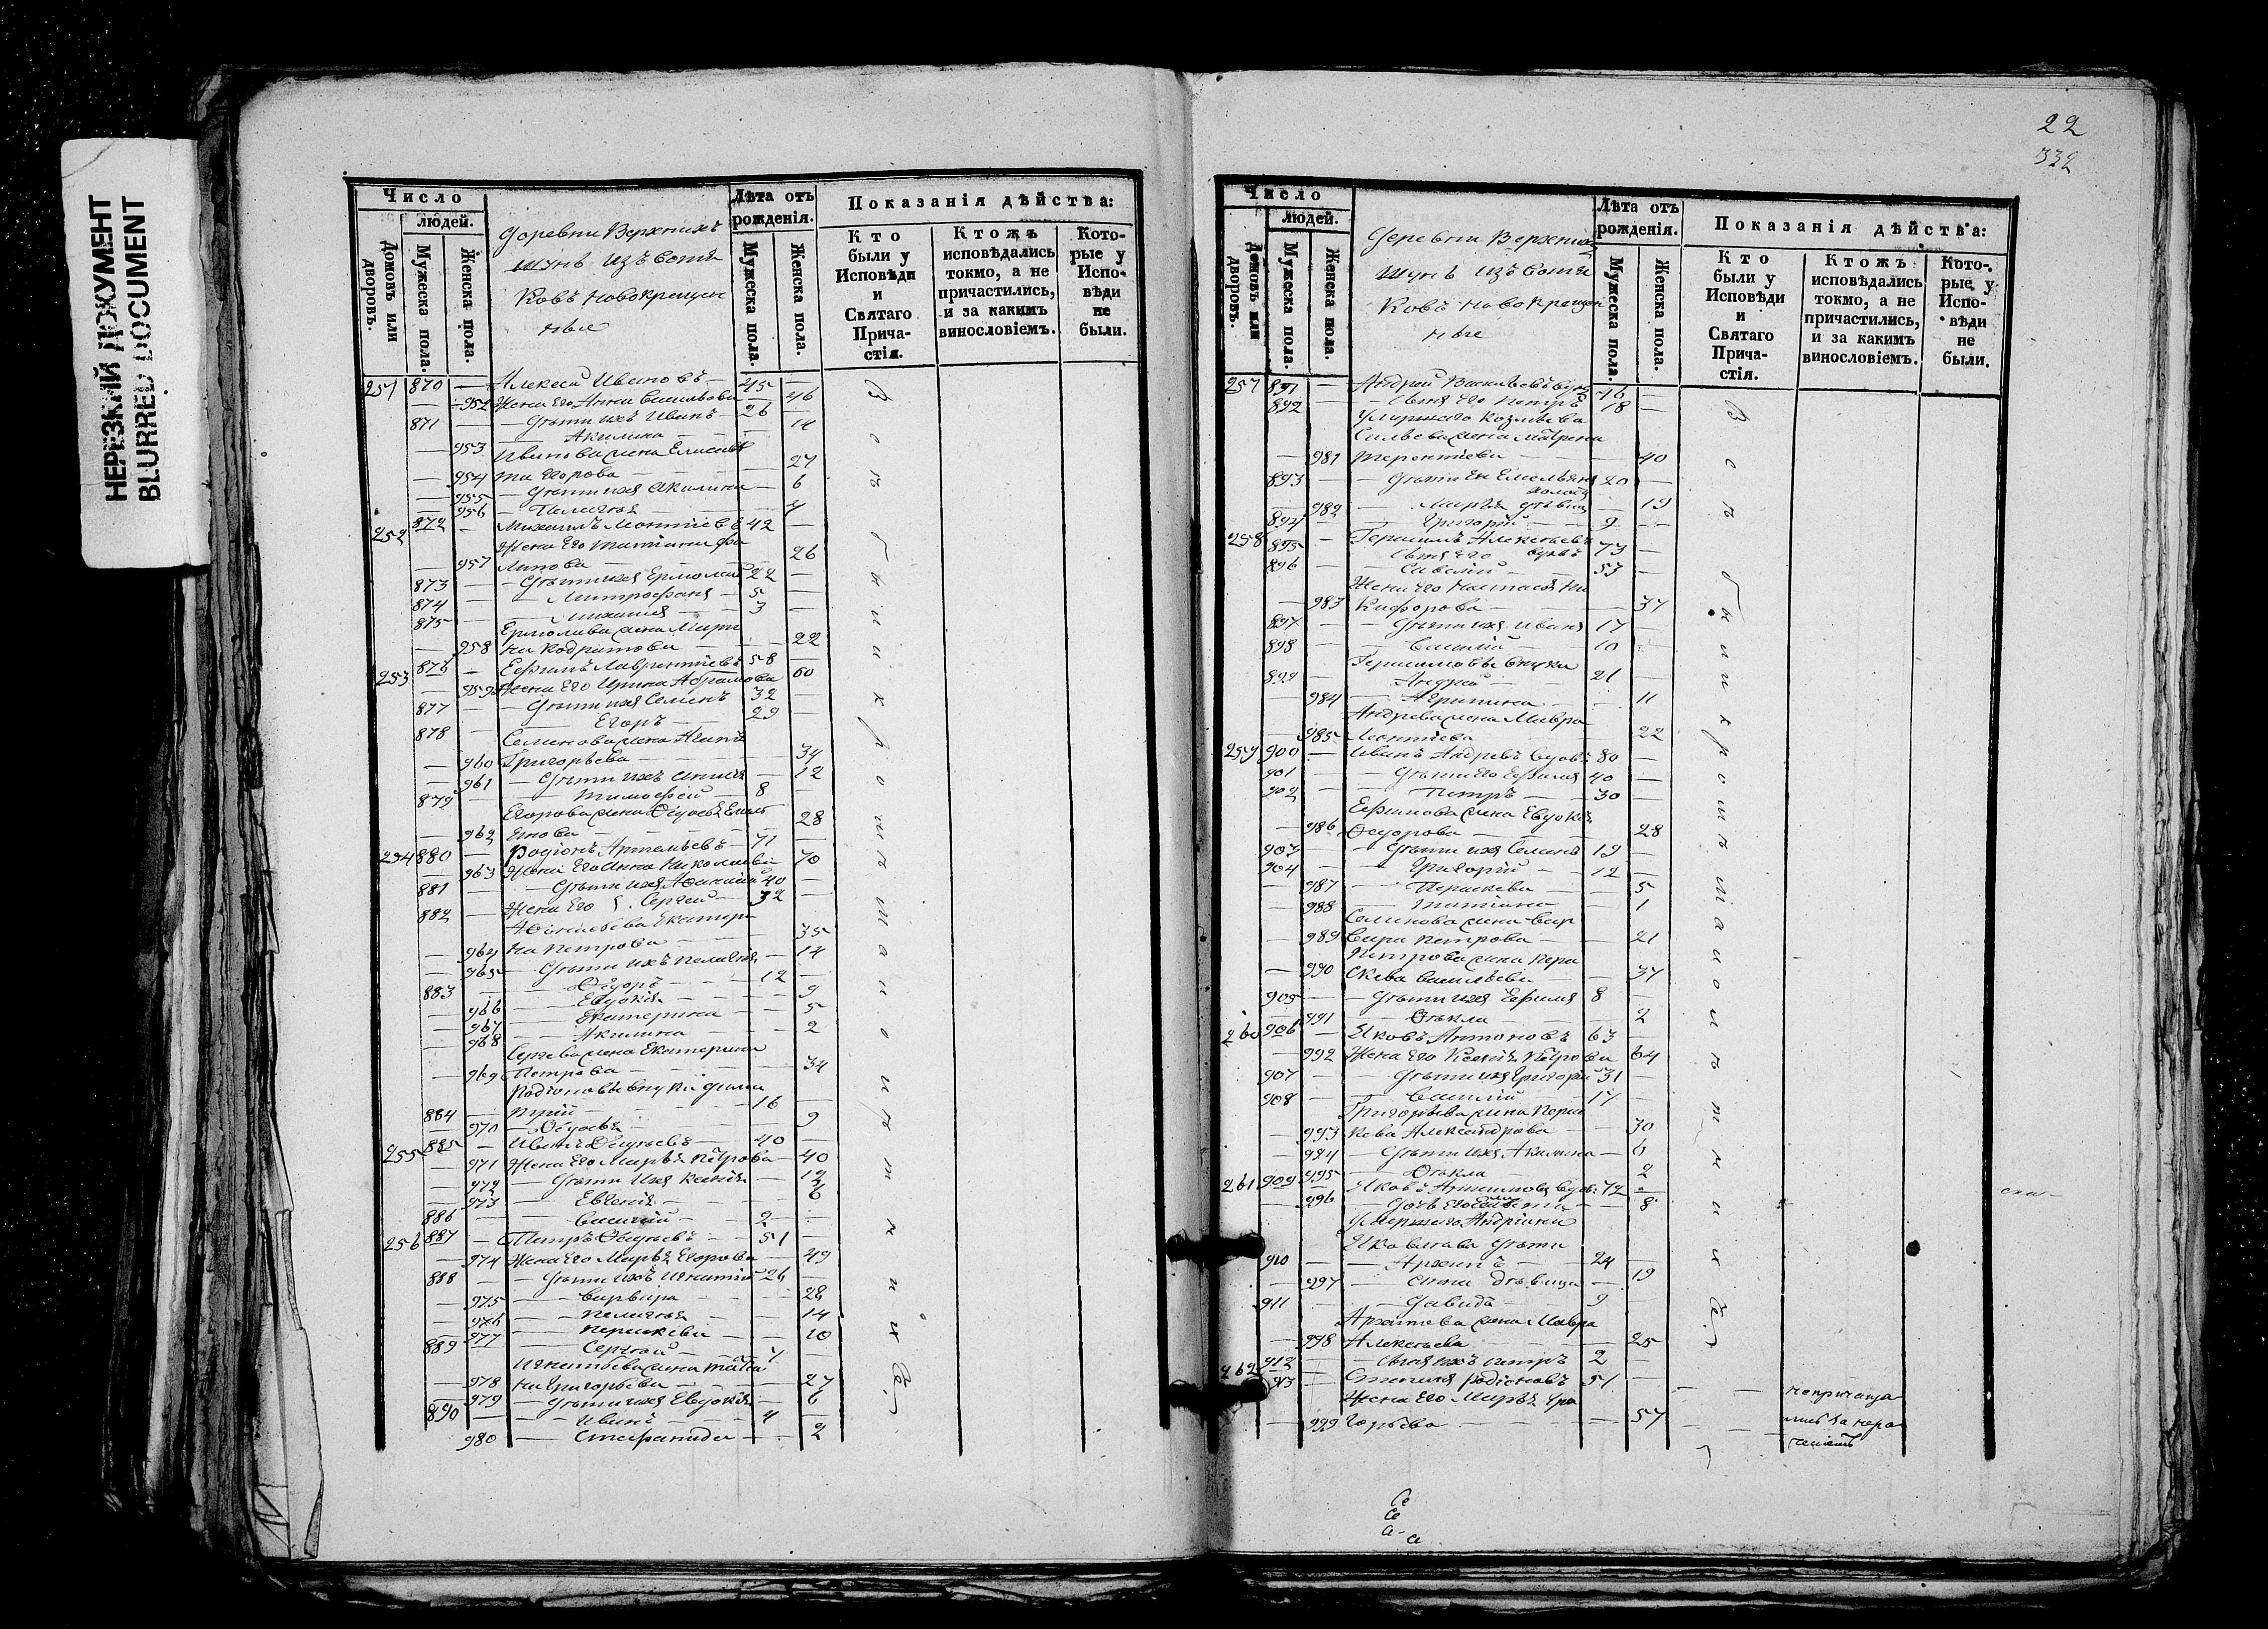 НЕРЕЗКИЙ ДОКУМЕНТ
BLURRED DOCUMENT
Число
людей.
Домовъ или дворовъ.
Мужеска пола.
Женска пола.
Деревни Верхнихъ
Шунь изъ Вотя
ковъ новокрещен
ные
Лѣта отъ рожденія.
Мужеска пола.
Женска пола.
Показанія дѣйства:
Кто были у Исповѣди и Святаго Причастія.
Ктожъ исповѣдались токмо, а не причастились, и за какимъ винословіемъ.
Которые у Исповѣди не были.
251 870 — Алексей Ивановъ — 45 —
— 952 Жена его Анна Васильева — 46
871 — Дѣти ихъ Иванъ 26 —
— 953 Акилина — 14
Иванова жена Елисаве
— 954 та Егорова — 27
— 955 Дѣти ихъ Акилина — 6
— 956 Пелагея —
252 872 — Михаилъ Леонтіевъ 42 —
Жена его Татіана Фи
— 957 липова — 26
873 — Дѣти ихъ Ермолай 22 —
874 — Митрофанъ — 5 —
875 — Михаилъ — 3 —
Ермолаева жена Мари
— 958 на Кодратова — 22
253 876 — Ефимъ Лаврентіевъ 58 —
— 959 Жена его Ирина Абрамова 60
877 — Дѣти ихъ Семенъ 32 —
878 — Егоръ — 29 —
Семенова жена
— 960 Григорьева — 34
— 961 Дѣти ихъ — 12
879 — Тимофей — 8 —
Егорова жена Ѳедосья Емель
— 962 янова — 28
254 880 — Родіонъ Артемьевъ — 71 —
— 963 Жена его Анна Николаева — 70
881 — Дѣти ихъ Аѳанасій 40 —
882 — Жена его Сергей — 32 —
Аѳанасьева Екатери
— 964 на Петрова — 35
— 965 Дѣти ихъ Пелагея — 14
883 — Ѳедоръ — 12 —
— 966 Евдокія — 9
— 967 Екатерина — 5
— 968 Акилина — 2
Сергеева жена Екатерина
— 969 Петрова — 34
Родіоновы внуки Дими
884 — трій — 16 —
— 970 Ѳедосья — 9
255 885 — Иванъ Ѳедотьевъ — 40 —
— 971 Жена его Марья Петрова — 40
— 972 Дѣти ихъ Ксенія — 12
— 973 Евгенія — 6
886 — Василій — 2 —
256 887 — Петръ Ѳедотьевъ — 51 —
— 974 Жена его Марья Егорова — 49
888 — Дѣти ихъ Игнатій 26 —
— 975 Варвара — 28
— 976 Пелагея — 14
— 977 Параскева — 10
889 — Сергей — 4 —
Игнатьева жена Татіа
— 978 на Григорьева — 27
— 979 Дѣти ихъ Евдокія — 6
890 — Иванъ — 4
980 Степанида — 2
22
332
Число
людей.
Домовъ или дворовъ.
Мужеска пола.
Женска пола.
Деревни Верхнихъ
Шунь изъ Вотя
ковъ новокрещен
ные
Лѣта отъ рожденія.
Мужеска пола.
Женска пола.
Показанія дѣйства:
Кто были у Исповѣди и Святаго Причастія.
Ктожъ исповѣдались токмо, а не причастились, и за какимъ винословіемъ.
Которые у Исповѣди не были.
257 891 — Андрей Васильевъ вдов 46 —
892 — Сынъ его Петръ 18 —
Умершаго Козмы
Сильева жена Матрена
— 981 Терентіева — 40
893 — Дѣти ея Емельянъ 20 —
холост
— 982 Марья дѣвица — 19
894 — Григорій — 9 —
258 895 — Герасимъ Алексеевъ вдовъ 73 —
896 — Сынъ его Савелій — 53 —
Жена его Настасія Ни
— 983 кифорова — 37
897 — Дѣти ихъ Иванъ 17 —
898 — Василій — 10 —
Герасимовы внуки
899 — Андрей — 21 —
— 984 Агрипина — 11
Андреева жена Мавра
— 985 Леонтіева — 22
259 900 — Иванъ Андреевъ вдовъ 80 —
901 — Дѣти его Ефимъ 40 —
902 — Петръ — 30 —
Ефимова жена Евдокія
— 986 Ѳедорова — 28
903 — Дѣти ихъ Семенъ 19 —
904 — Григорій — 12 —
— 987 Параскева — 5
— 988 Татіана — 1
Семенова жена Вар
— 989 вара Петрова — 21
Петрова жена Пара
— 990 скева Васильева — 37
905 — Дѣти ихъ Ефимъ 8 —
— 991 Ѳекла — 2
260 906 — Яковъ Антоновъ 63 —
— 992 Жена его Ксенія Петрова 64
907 — Дѣти ихъ Григорій 31 —
908 — Василій — 17 —
Григорьева жена Парас
— 993 кева Александрова — 30
— 994 Дѣти ихъ Акилина — 6
— 995 Ѳекла — 2
261 909 — Яковъ Артамоновъ вдов 72 —
— 996 Дочь его — 8
Умершаго Андріяна
Яковлева дѣти
910 — Архипъ — 24 —
— 997 Анна дѣвица — 19
911 — Давидъ — 9 —
Архипова жена Мавра
— 998 Алексеева — 25
912 — Сынъ ихъ Петръ 2 —
262 913 — Степанъ Родіоновъ 51 —
Жена его Марья Гри
— 999 горьева — 57
непричаща
лись за нера
ченіемъ